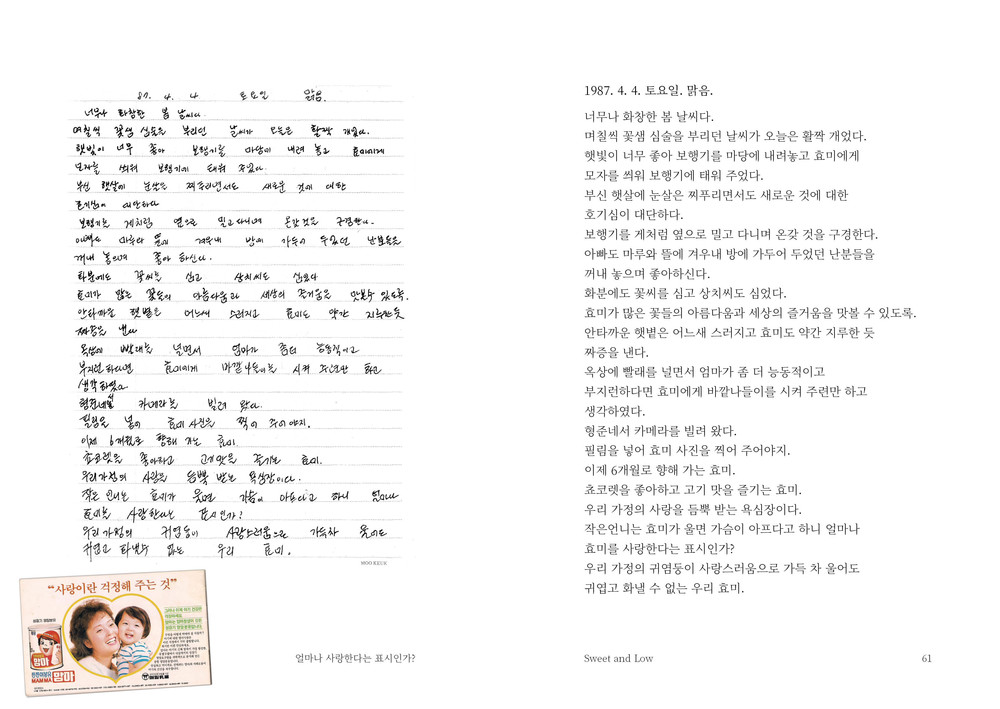 87. 4. 4 토요일 맑음.
너무나 화창한 봄 날씨다.
며칠씩 꽃샘 심술을 부리던 날씨가 오늘은 활짝 개었다.
햇빛이 너무 좋아 보행기를 마당에 내려 놓고 효미에게
모자를 씌워 보행기에 태워 주었다.
부신 햇살에 눈살은 찌푸리면서도 새로운 것에 대한
호기심이 대단하다
보행기를 게처럼 옆으로 밀고 다니며 온갖 것을 구경한다.
아빠도 마루와 뜰에 겨우내 방에 가두어 두었던 난분들을
꺼내 놓으며 좋아 하신다.
화분에도 꽃씨를 심고 상치씨도 심었다
효미가 많은 꽃들의 아름다움과 세상의 즐거움을 맛볼수 있도록.
안타까운 햇볕은 어느새 스러지고 효미도 약간 지루한듯
짜증을 낸다
옥상에 빨래를 널면서 엄마가 좀더 능동적이고
부지런하다면 효미에게 바깥나들이를 시켜 주련만 하고
생각하였다
형준네서 카메라를 빌려 왔다.
필림을 넣어 효미 사진을 찍어 주어야지.
이제 6개월로 향해 가는 효미.
쵸코렛을 좋아하고 고기맛을 즐기는 효미.
우리 가정의 사랑을 듬뿍 받는 욕심장이다.
작은 언니는 효미가 울면 가슴이 아프다고 하니 얼마나
효미를 사랑한다는 표시인가?
우리 가정의 귀염둥이 사랑스러움으로 가득차 울어도
귀엽고 화낼수 없는 우리 효미.
MOO KEUK
“사랑이란 걱정해 주는 것”
맘마
MAMMA 맘마
매일유업
얼마나 사랑한다는 표시인가?
1987. 4. 4. 토요일. 맑음.
너무나 화창한 봄 날씨다.
며칠씩 꽃샘 심술을 부리던 날씨가 오늘은 활짝 개었다.
햇빛이 너무 좋아 보행기를 마당에 내려놓고 효미에게
모자를 씌워 보행기에 태워 주었다.
부신 햇살에 눈살은 찌푸리면서도 새로운 것에 대한
호기심이 대단하다.
보행기를 게처럼 옆으로 밀고 다니며 온갖 것을 구경한다.
아빠도 마루와 뜰에 겨우내 방에 가두어 두었던 난분들을
꺼내 놓으며 좋아하신다.
화분에도 꽃씨를 심고 상치씨도 심었다.
효미가 많은 꽃들의 아름다움과 세상의 즐거움을 맛볼 수 있도록.
안타까운 햇볕은 어느새 스러지고 효미도 약간 지루한 듯
짜증을 낸다.
옥상에 빨래를 널면서 엄마가 좀 더 능동적이고
부지런한다면 효미에게 바깥나들이를 시켜 주련만 하고
생각하였다.
형준네서 카메라를 빌려 왔다.
필림을 넣어 효미 사진을 찍어 주어야지.
이제 6개월로 향해 가는 효미.
쵸코렛을 좋아하고 고기 맛을 즐기는 효미.
우리 가정의 사랑을 듬뿍 받는 욕심장이다.
작은언니는 효미가 울면 가슴이 아프다고 하니 얼마나
효미를 사랑한다는 표시인가?
우리 가정의 귀염둥이 사랑스러움으로 가득 차 울어도
귀엽고 화낼 수 없는 우리 효미.
Sweet and Low
61